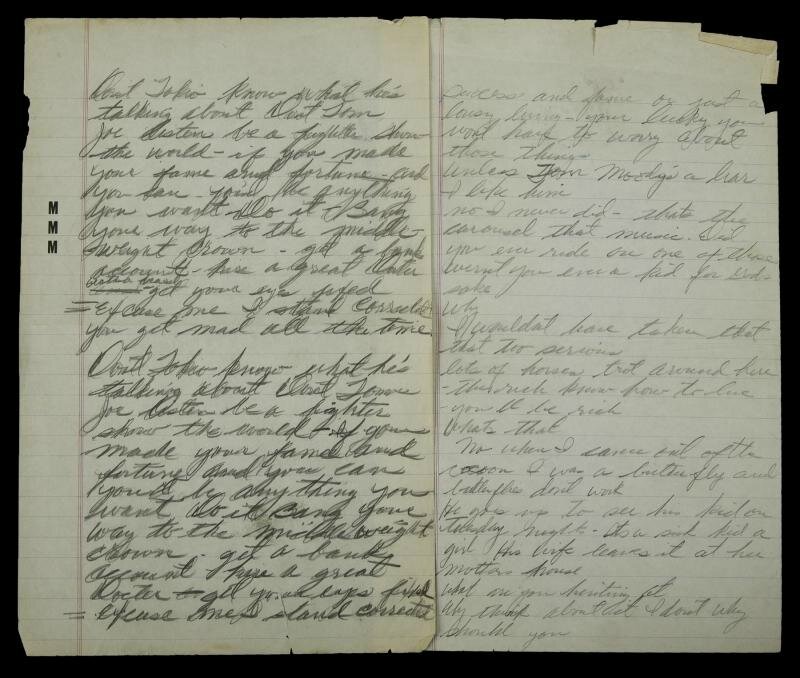 Don't Tokio know what he's
talking about Don't Tom
Joe listen be a fighter show
the world - if you made
your fame and fortune - and
you can you'll be anything
you want Do it - Bang
your way to the middle-
weight crown - get a bank
account - hire a great doctor
get your eyes fixed
= excuse me I stand corrected
you get mad all the time
Don't Tokio know what he's
talking about Don't Tom
Joe listen be a fighter
show the world - if you
made your fame and
fortune and you can
you'll be anything you
want do it Bang your
way to the middleweight
crown - get a bank
account hire a great
doctor - get your eyes fixed
= excuse me I stand corrected
M
M
M
success and fame or just a
lousy living - your lucky you
wont have to worry about
those things
unless Tom Moody's a liar
I like him
no I never did - thats the
carousel that music. Did
you ever ride on one of those
wernt you ever a kid for God-
sake
why
I wouldnt have taken that
that too serious
lots of horses trot around here
- the rich know how to live
- you'll be rich
whats that
No when I came out of the
cocoon I was a butterfly and
butterflies don't work
He goes up to see his kid on
tuesday nights - its a sick kid a
girl His wife leaves it at her
mothers house
what are you hinting at
Why think about it I don't why
should you